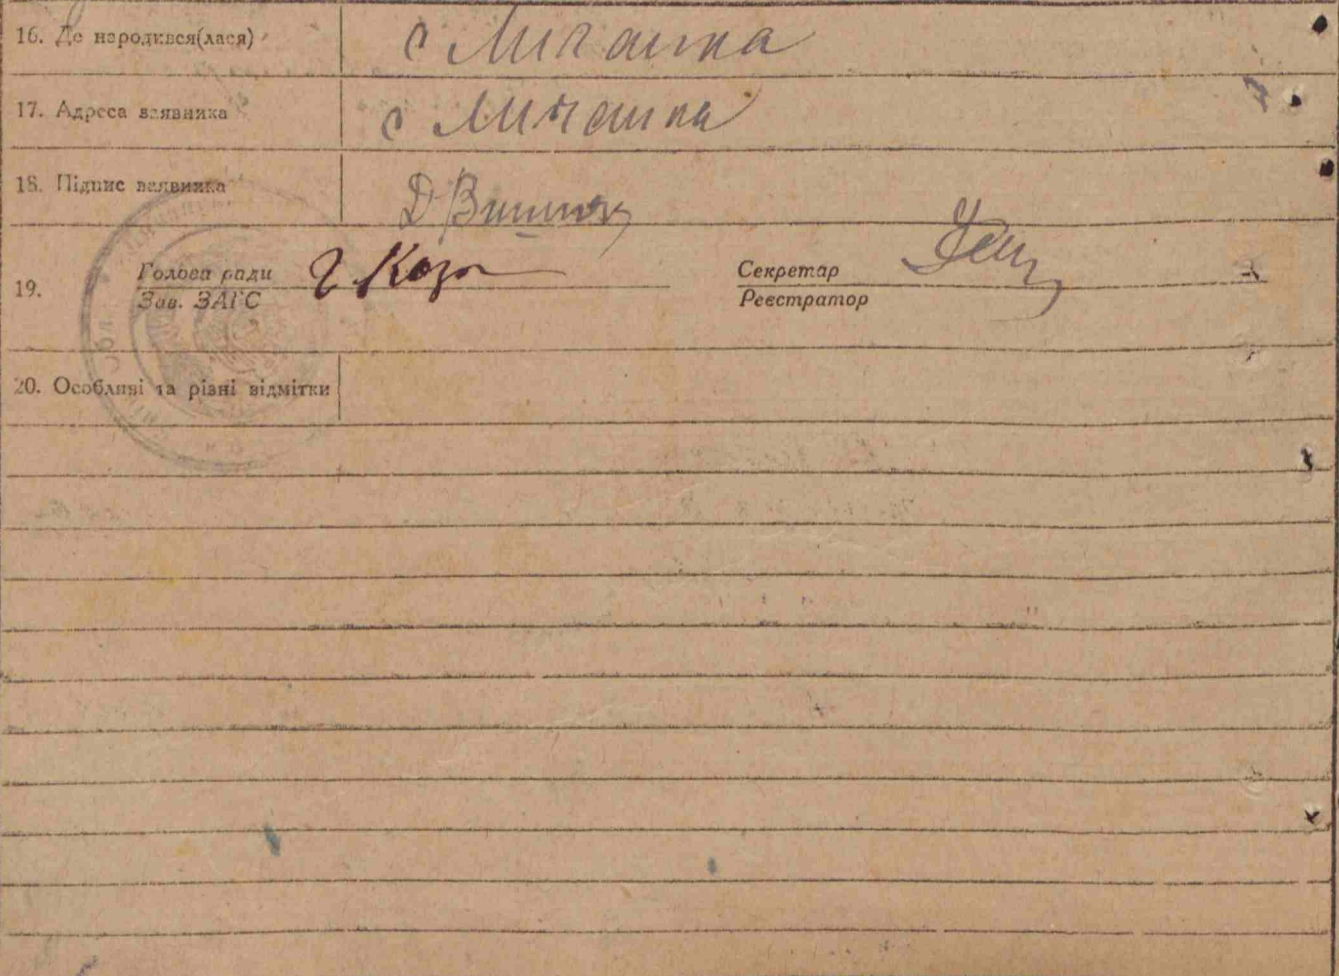 16. Де народився(лася) с Личанка
17. Адреса заявника с Личанка
18. Підпис заявника Д Вишня
19. Голова ради Секретар
Зав. ЗАГС Реєстратор
20. Особливі та різні відмітки